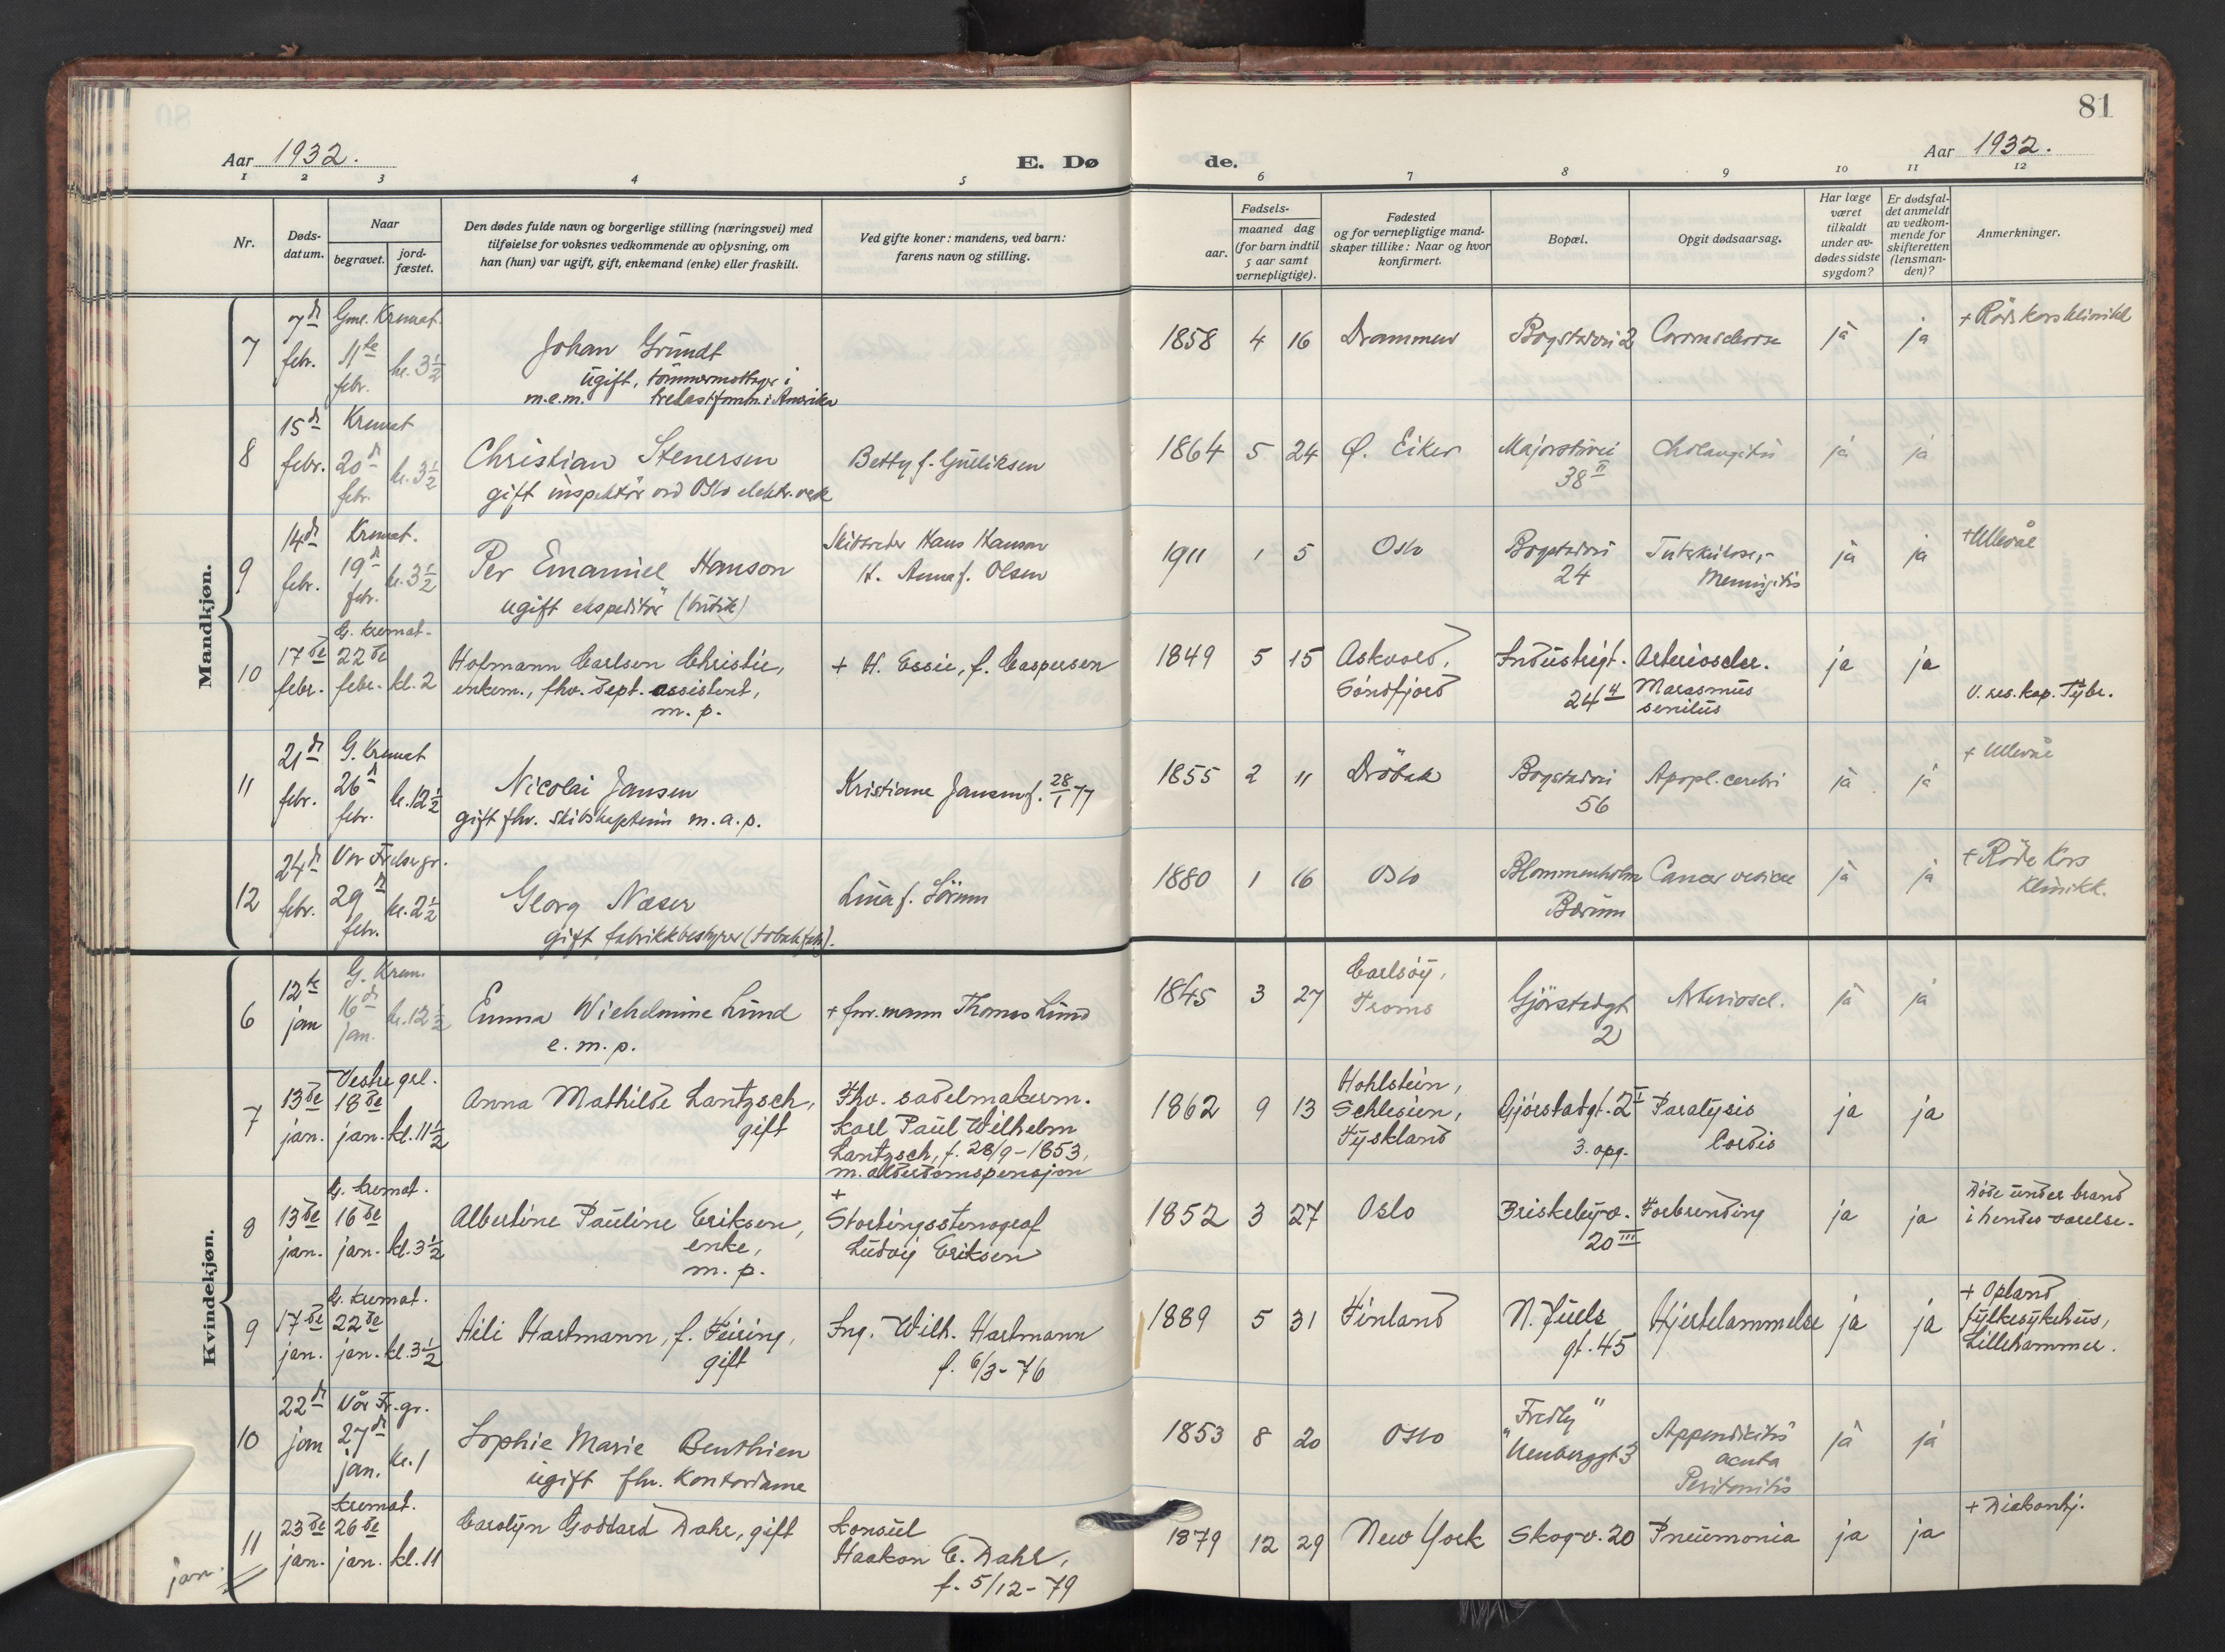 81
Aar 1932. E. Dø de. Aar 1932.
1 2 3 4 5 6 7 8 9 10 11 12
Nr.
Døds-
datum.
Naar
begravet.
jord-
fæstet.
Den dødes fulde navn og borgerlige stilling (næringsvei) med
tilføielse for voksnes vedkommende av oplysning, om
han (hun) var ugift, gift, enkemand (enke) eller fraskilt.
Ved gifte koner: mandens, ved barn:
farens navn og stilling.
Fødsels-
aar.
maaned dag
(for barn indtil
5 aar samt
vernepligtige).
Fødested
og for vernepligtige mand-
skaper tillike: Naar og hvor
konfirmert.
Bopæl.
Opgit dødsaarsag.
Har læge
været
tilkaldt
under av-
dødes sidste
sygdom?
Er dødsfal-
det anmeldt
av vedkom-
mende for
skifteretten
(lensman-
den)?
Anmerkninger.
Mandkjøn.
7
7d
febr.
Gml. Kremat.
11te
febr.
kl. 3½
Johan Grundt
ugift, tømmermottager i
m.e.m. i Amerika
1858 4 16
Drammen
Bogstadvei 2
ja
ja
+ Røde kors klinikk
8
15d
febr.
Kremat
20d
febr.
kl. 3½
Christian Stenersen
gift inspektør ved Oslo elektr.verk
Betty f. Gulliksen
1864 5 24
Ø. Eiker
Majorstuvei
38 II
Cholangitis
ja
ja
9
14d
febr.
Kremat.
19d
febr.
kl. 3½
Per Emanuel Hanson
ugift ekspeditør (butik)
Skibsreder Hans Hanson
H. Anna f. Olsen
1911 1 5
Oslo
Bogstadvei
24
Tuberkulose,-
Meningitis
ja
ja
+ Ullevål
10
17de
febr.
G. kremat.
22de
febr.
kl. 2
Hofmann Carlsen Christie,
enkem., fhv. dept. assistent,
m. p.
+ H. Essie, f. Caspersen
1849 5 15
Askvold,
Søndfjord
Industrigt.
24 4
Arterioscler.
Marasmus
senilus
ja
ja
V. res. kap. Tybr.
11
21d
febr.
G. Kremat
26d
febr.
kl. 12½
Nicolai Jansen
gift fhv. skibskaptein m. a. p.
Kristiane Jansen f. 28/1 77
1855 2 11
Drøbak
Bogstadvei
56
Apopl. cerebri
ja
ja
+ Ullevål
12
24d
febr.
Vor Frelser gr.
29d
febr.
kl. 2½
Georg Næser
gift fabrikkbestyrer (tobakfabr.).
Lina f. Sörum
1880 1 16
Oslo
Blommenholm
Bærum
Cancer vesicae
ja
ja
+ Røde Kors
klinikk.
Kvindekjøn.
6
12te
jan
G. Krem.
16d
jan.
kl. 12½
Emma Wilhelmine Lund
e. m. p.
+ forr. mann Thomas Lund
1845 3 27
Carlsøy,
Troms
Gjørstadgt
2
Arterioscl.
ja
ja
7
13de
jan.
Vestre grl.
18de
jan.
kl. 11½
Anna Mathilde Lantzsch,
gift
Fhv. sadelmakerm.
Karl Paul Wilhelm
Lantzsch, f. 28/9-1853,
m. alderdomspensjon
1862 9 13
Hohlstein,
Schlesien,
Tyskland
Gjørstadgt. 2 I
3. opg.
Paralysis
Cordis
ja
ja
8
13de
jan.
G. kremat.
16de
jan.
kl. 3½
Albertine Pauline Eriksen,
enke,
m. p.
+
Stortingsstenograf
Ludvig Eriksen
1852 3 27
Oslo
Briskebyv.
20 III
Forbrending
ja
ja
Døde under brand
i hendes værelse.
9
17de
jan.
G. kremat.
22de
jan.
kl. 3½
Aili Hartmann, f. Feiring,
gift
Ing. Wilh. Hartmann
f. 6/3-76
1889 5 31
Finland
N. Juels
gt. 45
Hjertelammelse
ja
ja
+ Opland
fylkessykehus,
Lillehammer.
10
22d
jan
Vår Fr. gr.
27d
jan.
kl. 1
Sophie Marie Benthien
ugift fhv. kontordame
1853 8 20
Oslo
"Fredly"
Uranienborggt 3
Appendicitis
acuta
Peritonitis
ja
ja
11
23de
jan.
kremat.
26de
jan.
kl. 11
Carolyn Goddard Dahl, gift
Konsul
Haakon C. Dahl,
f. 5/12-79
1879 12 29
New York
Skogv. 20
Pneumonia
ja
ja
+ Diakonhj.
jan.